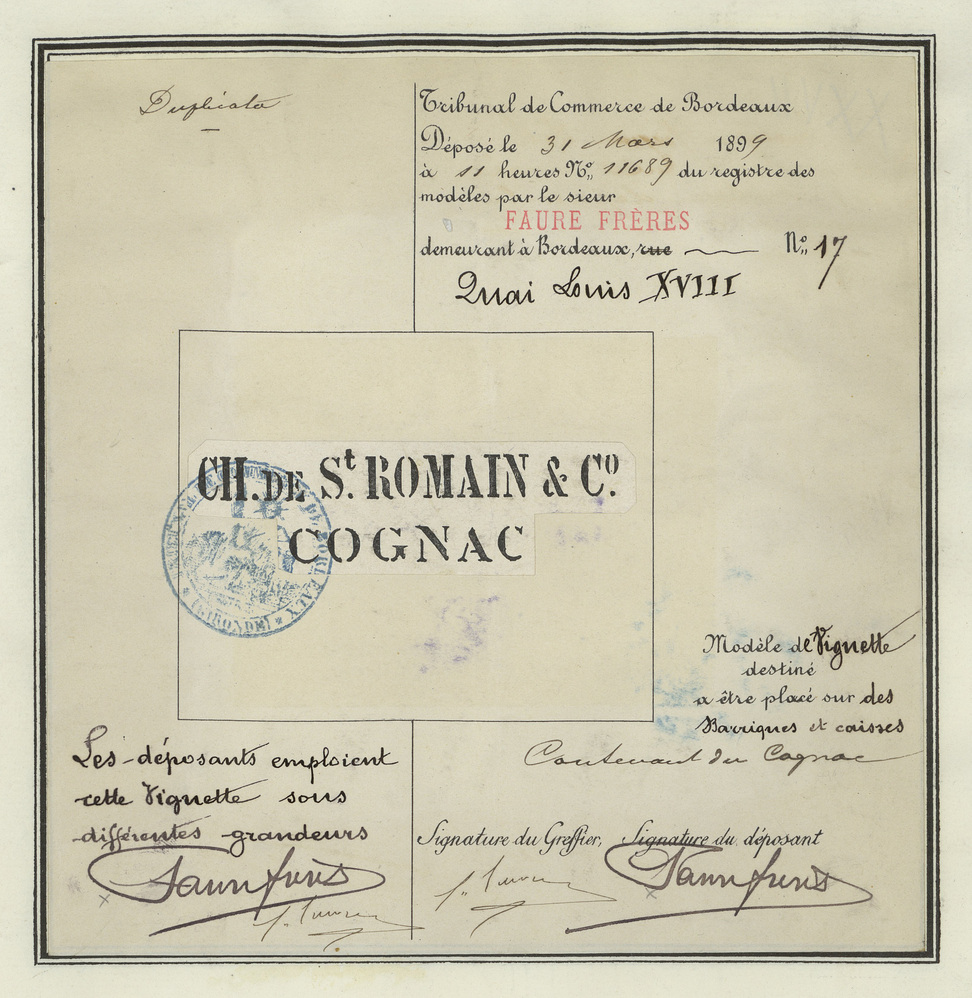 Duplicata
Tribunal de Commerce de Bordeaux
Déposé le 31 Mars 1899
à 11 heures No. 11689 du registre des
modèles par le sieur
FAURE FRÈRES
demeurant à Bordeaux, rue No. 17
Quai Louis XVIII
CH. DE St. ROMAIN & Co.
COGNAC
TRIBUNAL DE COMMERCE DE BORDEAUX
* (GIRONDE) *
Modèle de Vignette
destiné
a être placé sur des
Barriques et caisses
Contenant du Cognac
Les déposants emploient
cette Vignette sous
différentes grandeurs
Signature du Greffier, Signature du déposant
Faure frères
Faure frères